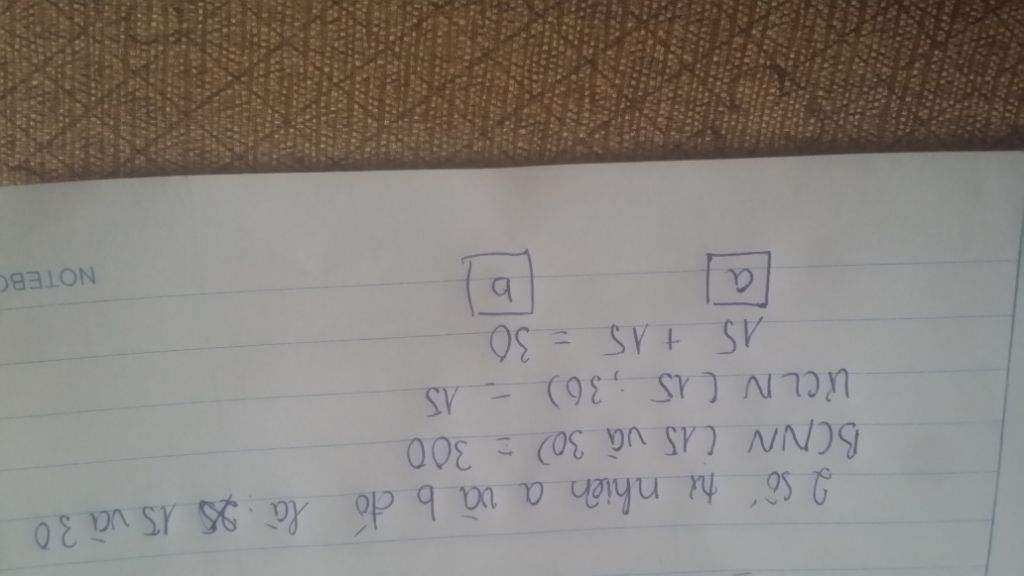 NOTEBO
a b
15 + 15 = 30
ƯCLN (15 ; 30) = 15
BCNN (15 và 30) = 300
2 số tự nhiên a và b đó là: 15 và 30